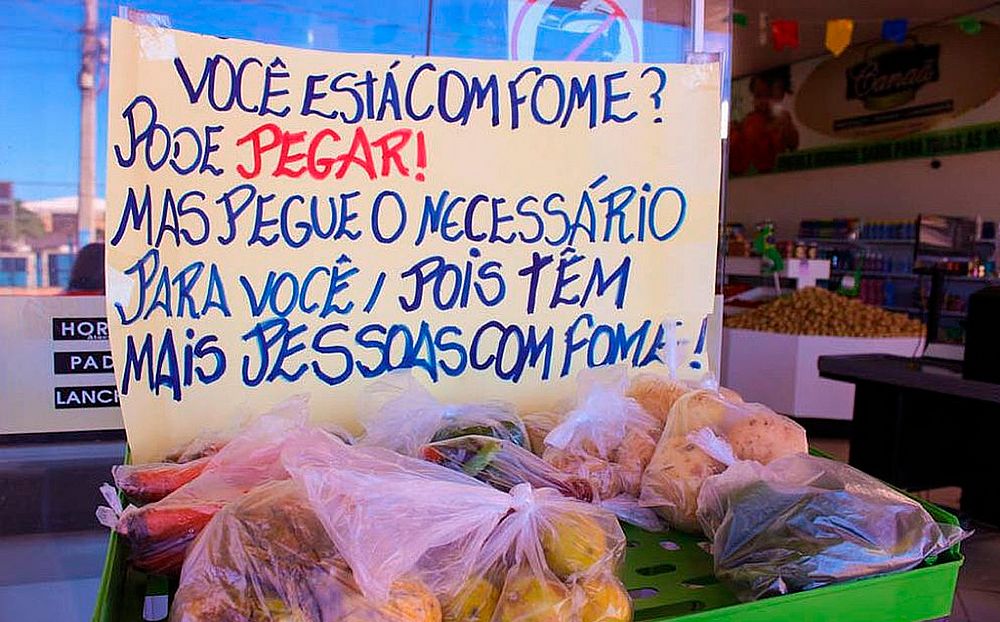 VOCÊ ESTÁ COM FOME?
PODE PEGAR!
MAS PEGUE O NECESSÁRIO
PARA VOCÊ, POIS TÊM
MAIS PESSOAS COM FOME!
HOR
PAD
LANCH
Canaã